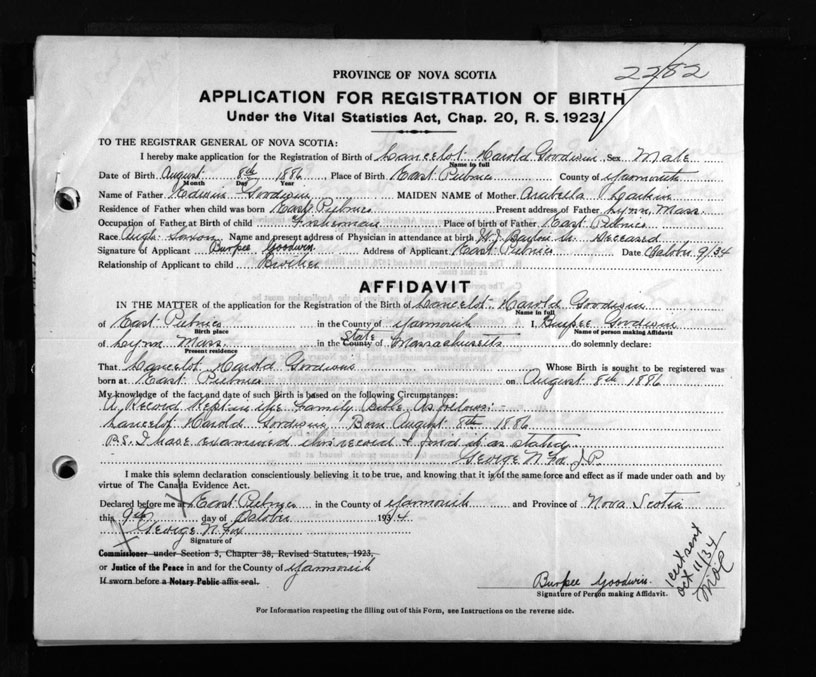 2282
PROVINCE OF NOVA SCOTIA
APPLICATION FOR REGISTRATION OF BIRTH
Under the Vital Statistics Act, Chap. 20, R. S. 1923
TO THE REGISTRAR GENERAL OF NOVA SCOTIA:
I hereby make application for the Registration of Birth of Lancelot Harold Goodwin Sex Male
Name in full
Date of Birth August 8th 1886 Place of Birth East Pubnico County of Yarmouth
Month Day Year
Name of Father Edwin Goodwin MAIDEN NAME of Mother Arabella Larkin
Residence of Father when child was born East Pubnico Present address of Father Lynn, Mass.
Occupation of Father at Birth of child Fisherman Place of birth of Father East Pubnico
Race Anglo Saxon Name and present address of Physician in attendance at birth Deceased
Signature of Applicant Burpee Goodwin Address of Applicant East Pubnico Date October 9/34
Relationship of Applicant to child Brother
AFFIDAVIT
IN THE MATTER of the application for the Registration of the Birth of Lancelot Harold Goodwin
Name in full
of East Pubnico in the County of Yarmouth I, Burpee Goodwin
Birth place Name of person making Affidavit
of Lynn Mass. in the County State of Massachusetts do solemnly declare:
Present residence
That Lancelot Harold Goodwin Whose Birth is sought to be registered was
born at East Pubnico on August 8th 1886
My knowledge of the fact and date of such Birth is based on the following Circumstances:
A Record Kept in the Family Bible As follows:-
Lancelot Harold Goodwin, Born August 8th 1886
P.S. I have examined this record & find it as stated
George N. Fox J.P.
I make this solemn declaration conscientiously believing it to be true, and knowing that it is of the same force and effect as if made under oath and by
virtue of The Canada Evidence Act.
Declared before me at East Pubnico in the County of Yarmouth and Province of Nova Scotia
this 9th day of October 1934
George N. Fox
Signature of
Commissioner under Section 5, Chapter 38, Revised Statutes, 1923,
or Justice of the Peace in and for the County of Yarmouth
If sworn before a Notary Public affix seal.
Burpee Goodwin
Signature of Person making Affidavit.
1 cert sent
Oct 11/34
For Information respecting the filling out of this Form, see Instructions on the reverse side.